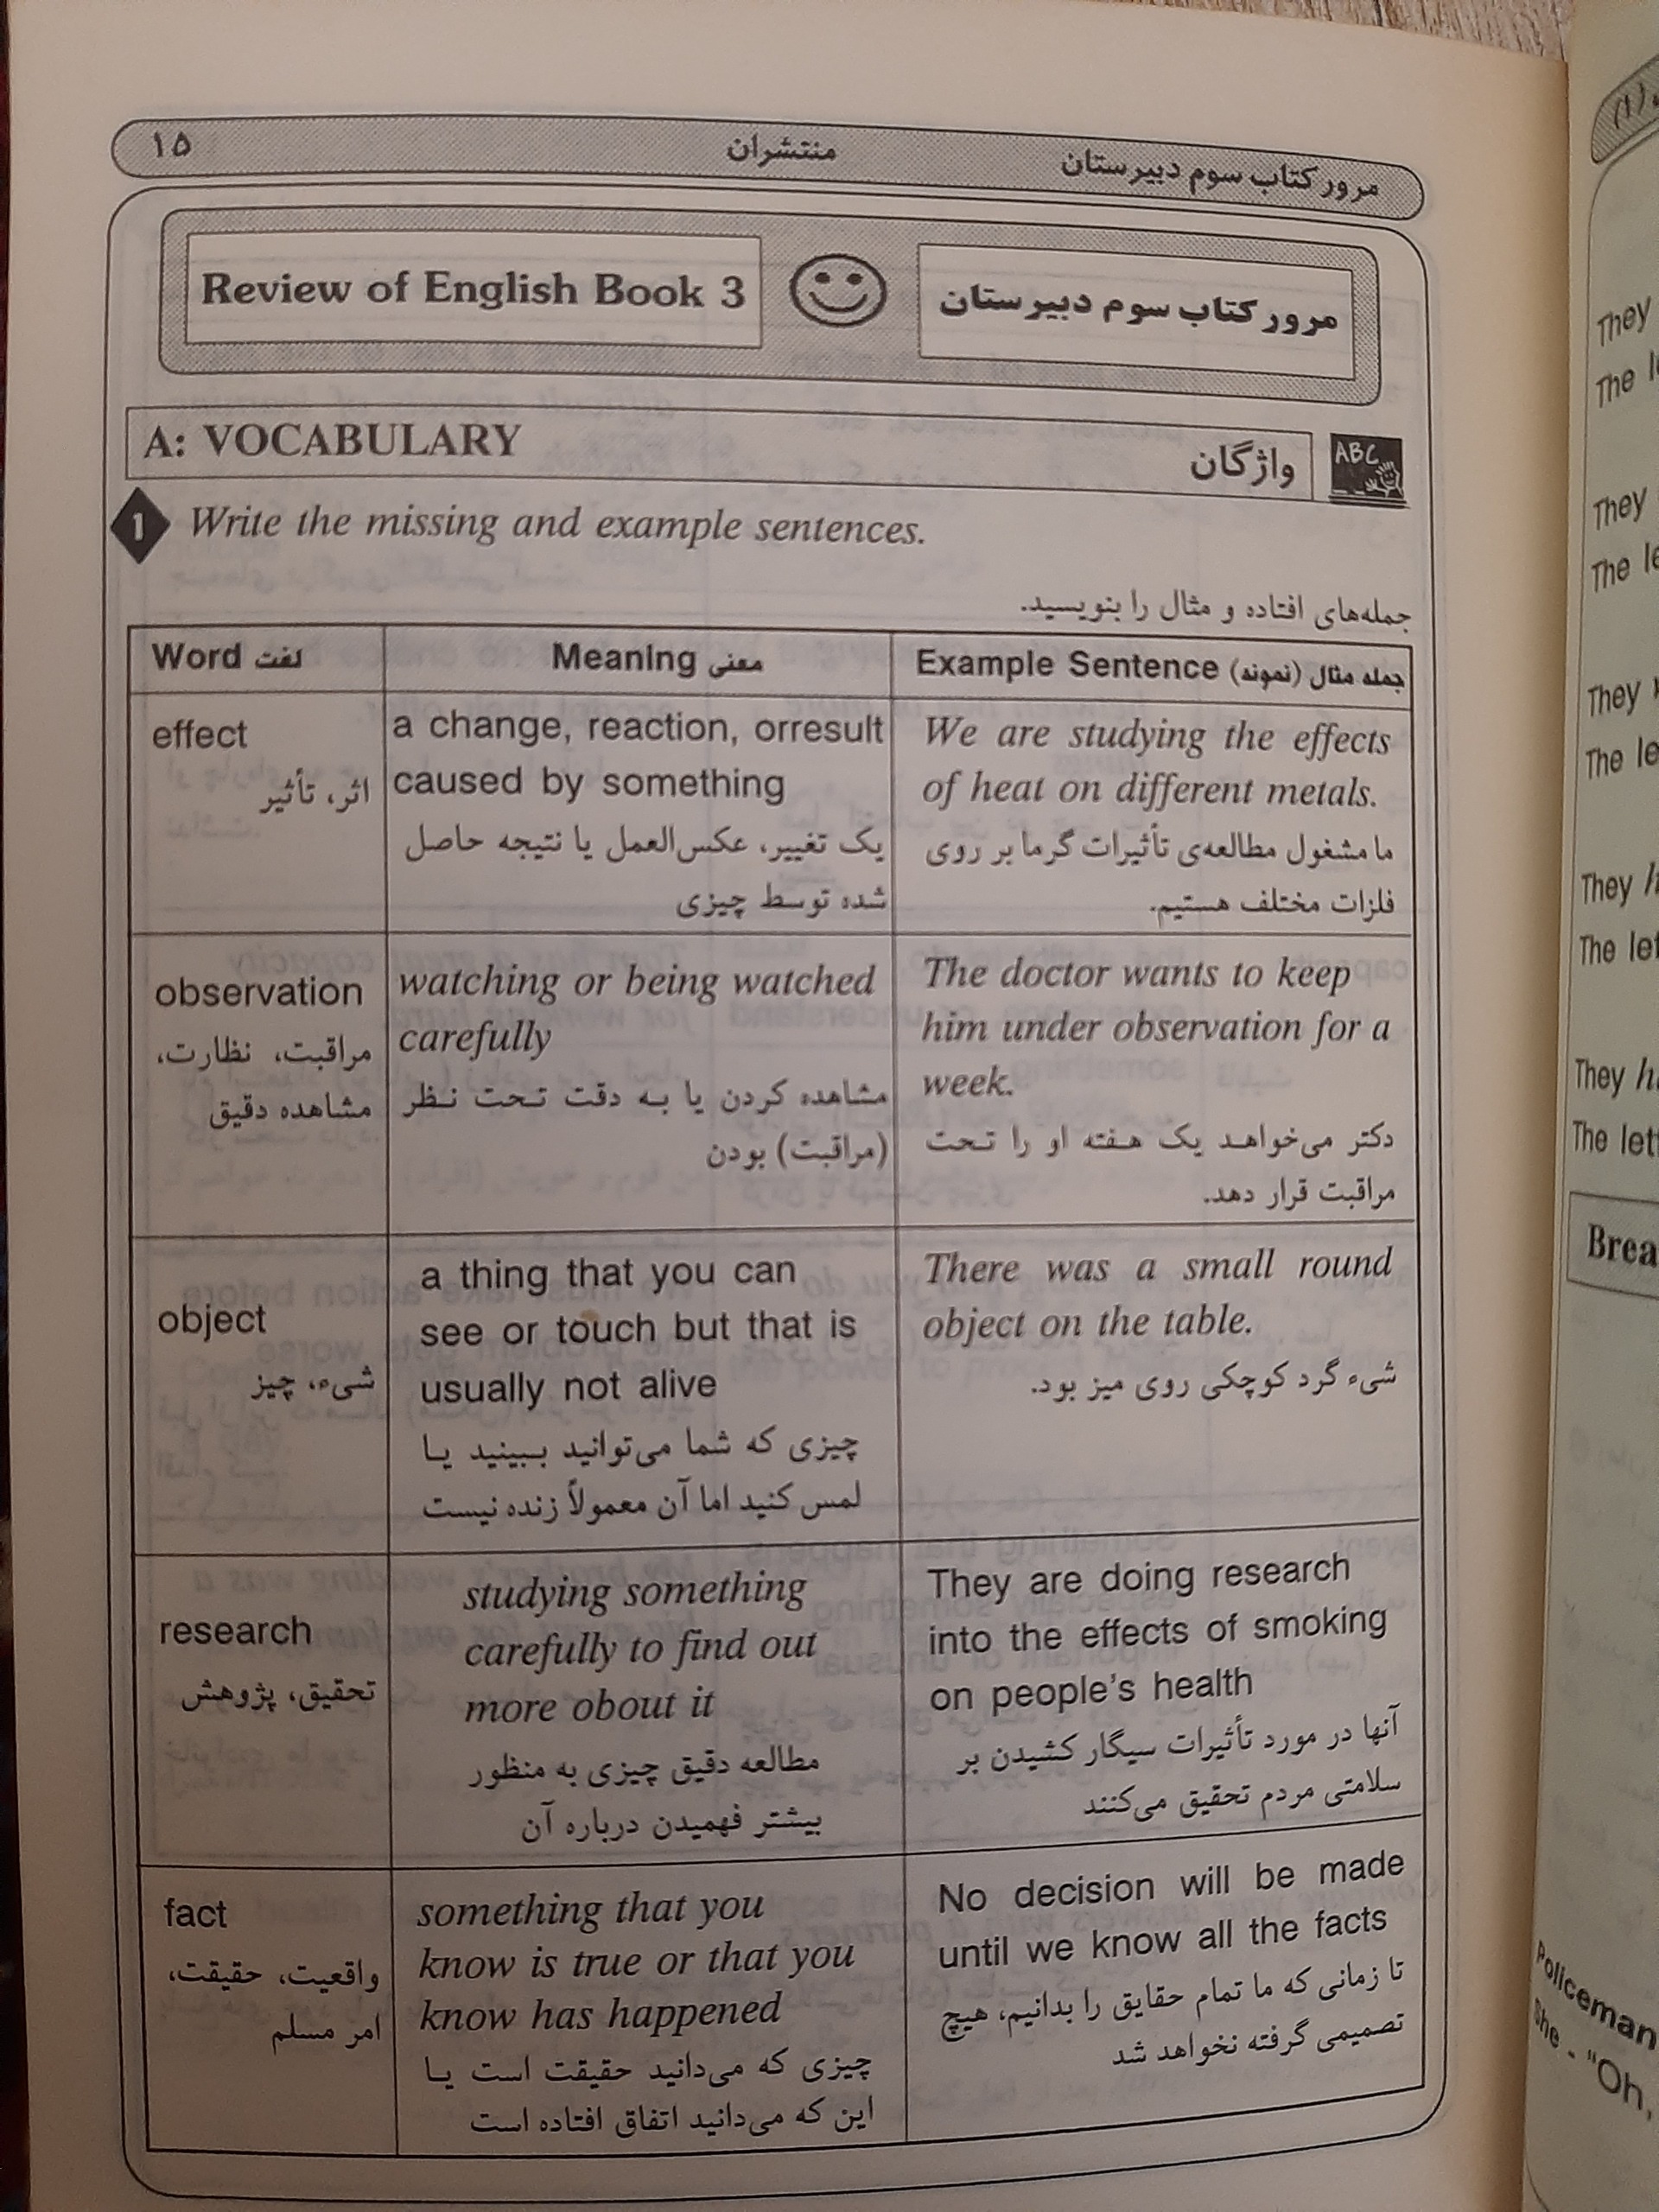 مرور کتاب سوم دبیرستان منتشران ۱۵
Review of English Book 3
مرور کتاب سوم دبیرستان
A: VOCABULARY
واژگان
ABC
1 Write the missing and example sentences.
جمله‌های افتاده و مثال را بنویسید.
Word لغت
Meaning معنی
Example Sentence (نمونه) جمله مثال
effect
اثر، تأثیر
a change, reaction, orresult
caused by something
یک تغییر، عکس‌العمل یا نتیجه حاصل
شده توسط چیزی
We are studying the effects
of heat on different metals.
ما مشغول مطالعه‌ی تأثیرات گرما بر روی
فلزات مختلف هستیم.
observation
مراقبت، نظارت،
مشاهده دقیق
watching or being watched
carefully
مشاهده کردن یا به دقت تحت نظر
(مراقبت) بودن
The doctor wants to keep
him under observation for a
week.
دکتر می‌خواهد یک هفته او را تحت
مراقبت قرار دهد.
object
شیء، چیز
a thing that you can
see or touch but that is
usually not alive
چیزی که شما می‌توانید ببینید یا
لمس کنید اما آن معمولاً زنده نیست
There was a small round
object on the table.
شیء گرد کوچکی روی میز بود.
research
تحقیق، پژوهش
studying something
carefully to find out
more obout it
مطالعه دقیق چیزی به منظور
بیشتر فهمیدن درباره آن
They are doing research
into the effects of smoking
on people's health
آنها در مورد تأثیرات سیگار کشیدن بر
سلامتی مردم تحقیق می‌کنند
fact
واقعیت، حقیقت،
امر مسلم
something that you
know is true or that you
know has happened
چیزی که می‌دانید حقیقت است یا
این که می‌دانید اتفاق افتاده است
No decision will be made
until we know all the facts
تا زمانی که ما تمام حقایق را بدانیم، هیچ
تصمیمی گرفته نخواهد شد
They
The
They
The
They
The
They
The
They
The
Policeman
She - "Oh,